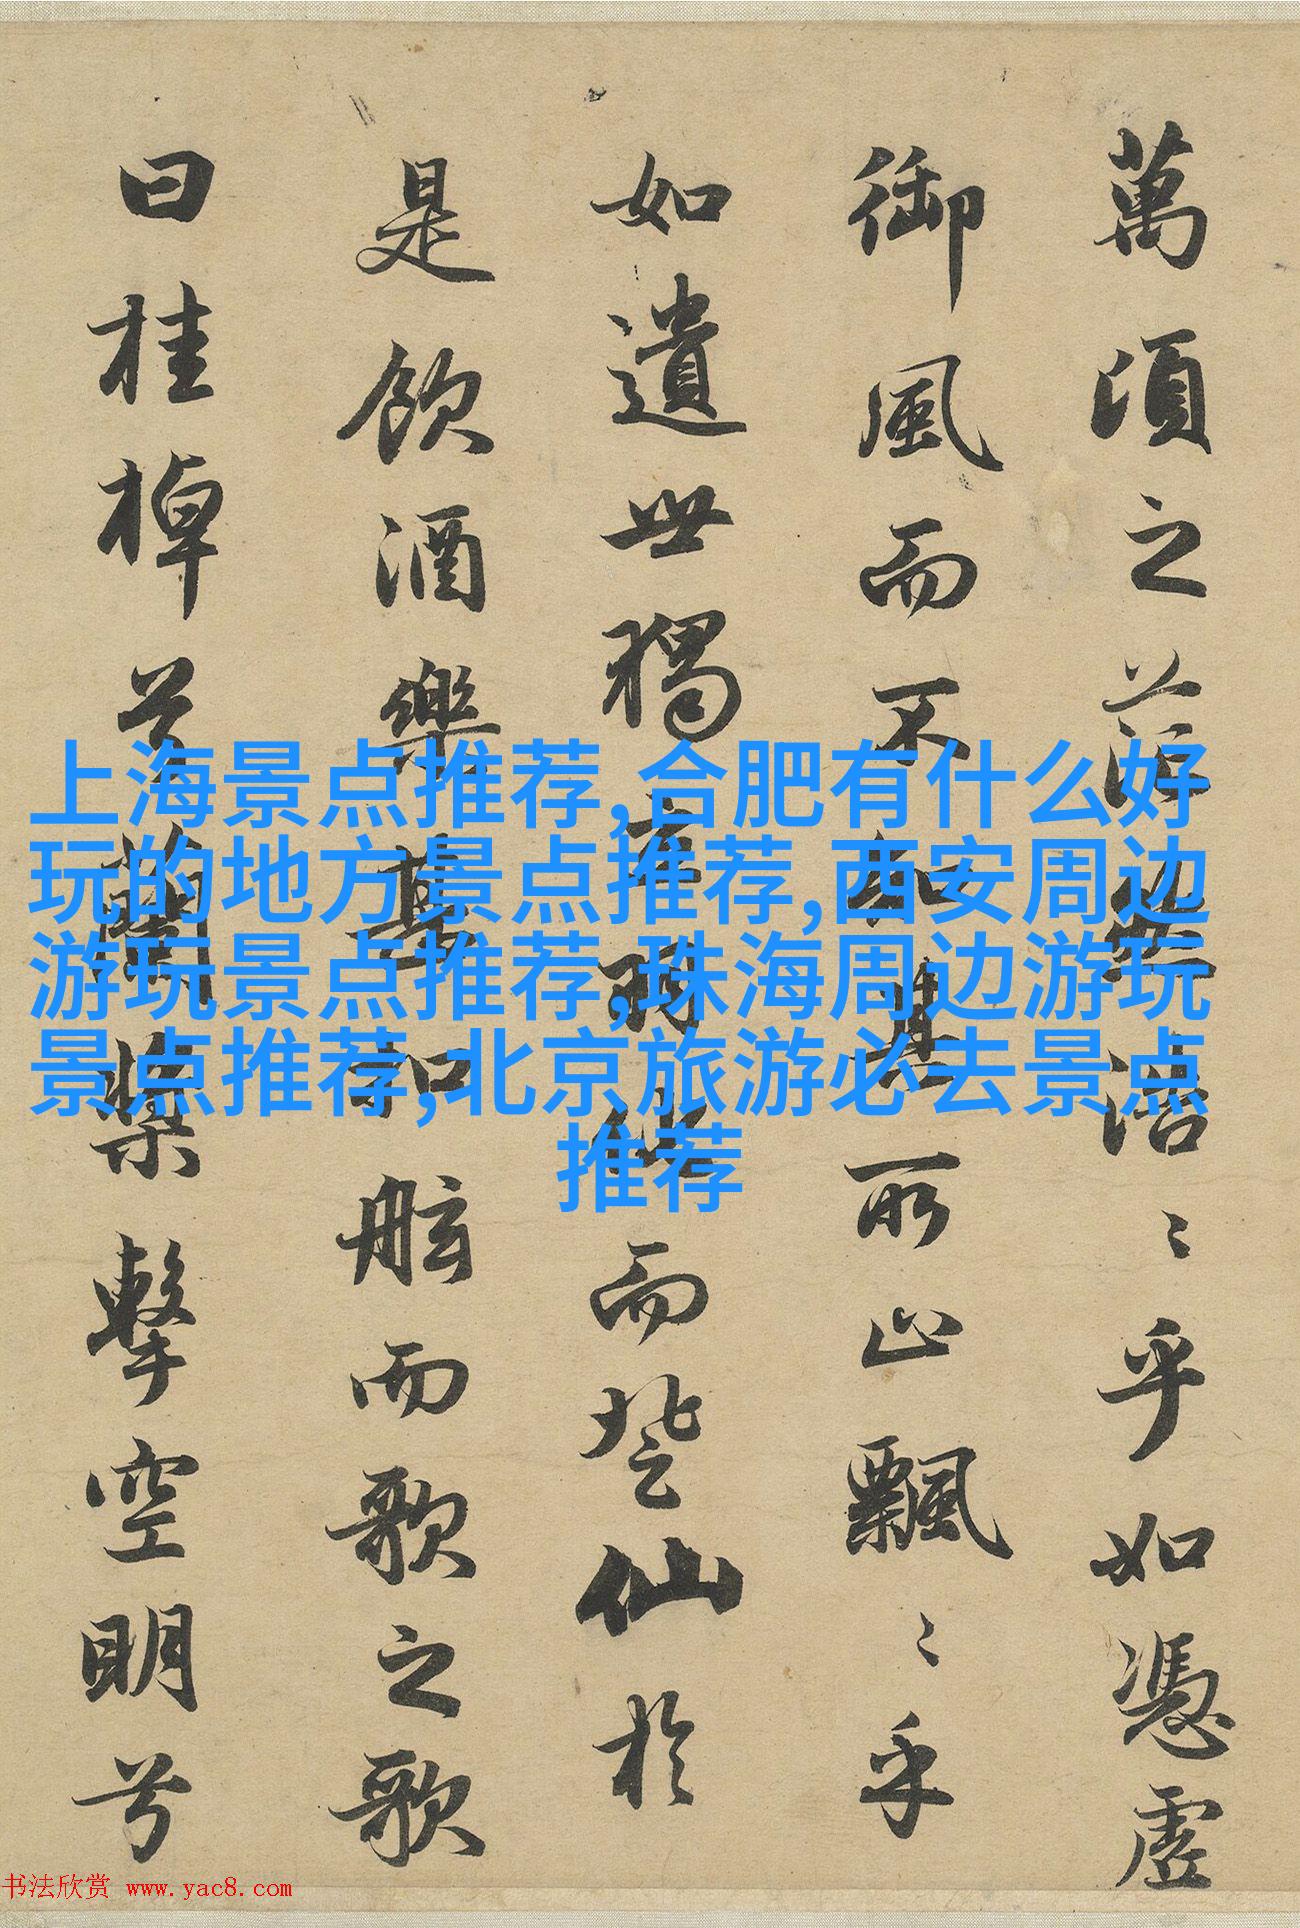 萬頃之茫然浩〻乎如憑虛
御風而不知其所止飄〻乎
如遺世獨立羽化而登仙於
是飲酒樂甚扣舷而歌之歌
曰桂棹兮蘭槳擊空明兮
上海景点推荐,合肥有什么好
玩的地方景点推荐,西安周边
游玩景点推荐,珠海周边游玩
景点推荐,北京旅游必去景点
推荐
书法欣赏 www.yac8.com